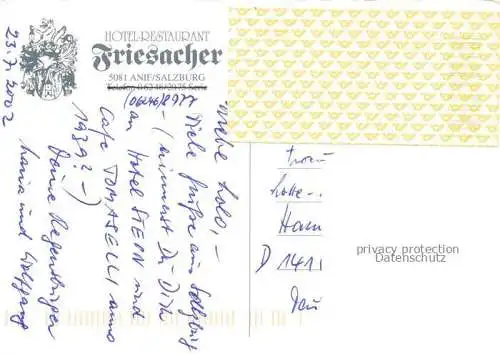 HOTEL-RESTAURANT
Friesacher
5081 ANIF/SALZBURG
Telefon 0 62 46/20 75 Serie
(06246)8977
23.7.2002
Liebe Lolo, –
Viele Grüße aus Salzburg
– (erinnerst Du Dich
an Hotel STEIN und
Café TOMASELLI anno
1939? –)
Deine Regensburger
und Wolfgang
Frau
Lotte
D 1411
privacy protection
Datenschutz